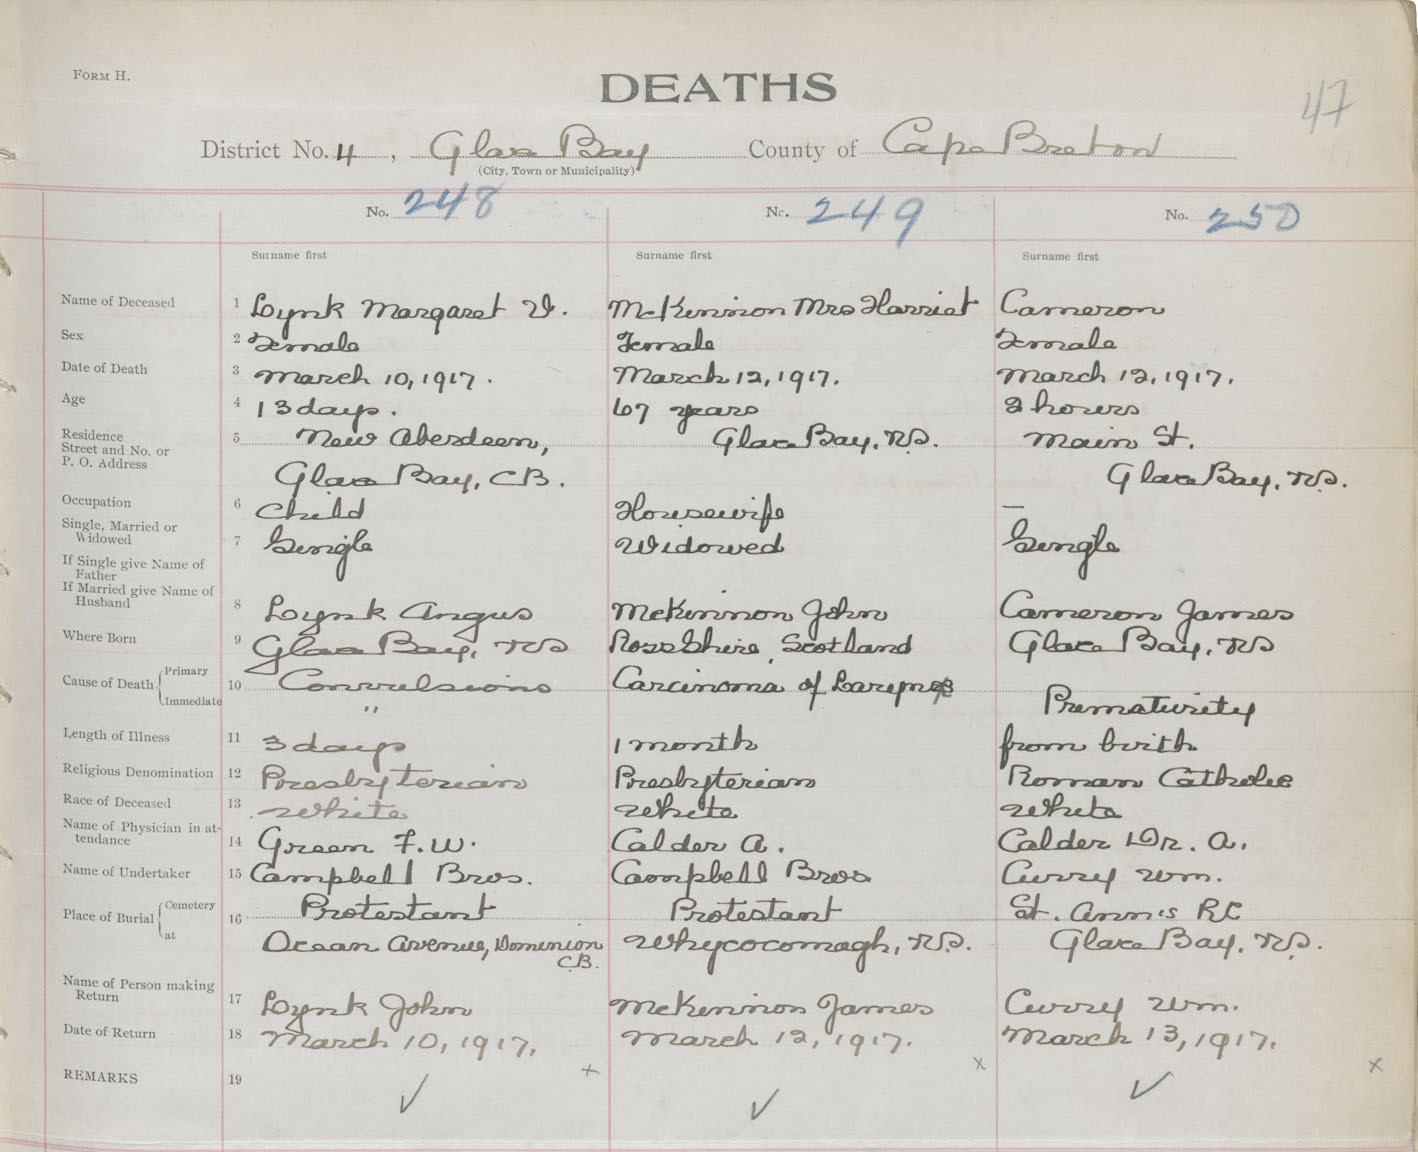 FORM H.
DEATHS
47
District No. 4, Glace Bay County of Cape Breton
(City, Town or Municipality)
No. 248 No. 249 No. 250
Surname first Surname first Surname first
Name of Deceased 1 Lynk Margaret V. McKinnon Mrs Harriet Cameron
Sex 2 Female Female Female
Date of Death 3 March 10, 1917. March 12, 1917. March 12, 1917.
Age 4 13 days. 67 years 2 hours
Residence
Street and No. or
P. O. Address
5 New Aberdeen, Glace Bay, N.S. Main St.
Glace Bay, C.B. Glace Bay, N.S.
Occupation 6 Child Housewife —
Single, Married or
Widowed
7 Single Widowed Single
If Single give Name of
Father
If Married give Name of
Husband
8 Lynk Angus McKinnon John Cameron James
Where Born 9 Glace Bay, NS Ross Shire, Scotland Glace Bay, NS
Cause of Death Primary
Immediate
10 Convulsions Carcinoma of Larynx Prematurity
"
Length of Illness 11 3 days 1 month from birth
Religious Denomination 12 Presbyterian Presbyterian Roman Catholic
Race of Deceased 13 White White White
Name of Physician in at-
tendance
14 Green F. W. Calder A. Calder Dr. A.
Name of Undertaker 15 Campbell Bros. Campbell Bros Curry Wm.
Place of Burial Cemetery
at
16 Protestant Protestant St. Ann's RC
Ocean Avenue, Dominion Whycocomagh, N.S. Glace Bay, N.S.
C.B.
Name of Person making
Return
17 Lynk John McKinnon James Curry Wm.
Date of Return 18 March 10, 1917. March 12, 1917. March 13, 1917.
REMARKS 19 x x x
✓ ✓ ✓